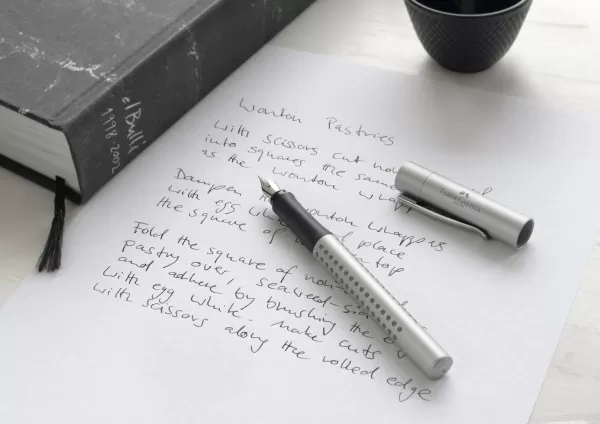 elBulli
1998-2002
Wonton Pastries
With scissors cut
into squares the same
as the wonton
Dampen wonton wrappers
with egg place
the square of top
Fold the square of
pastry over, seaweed
and adhere by brushing the
with egg white. Make cuts
with scissors along the rolled edge